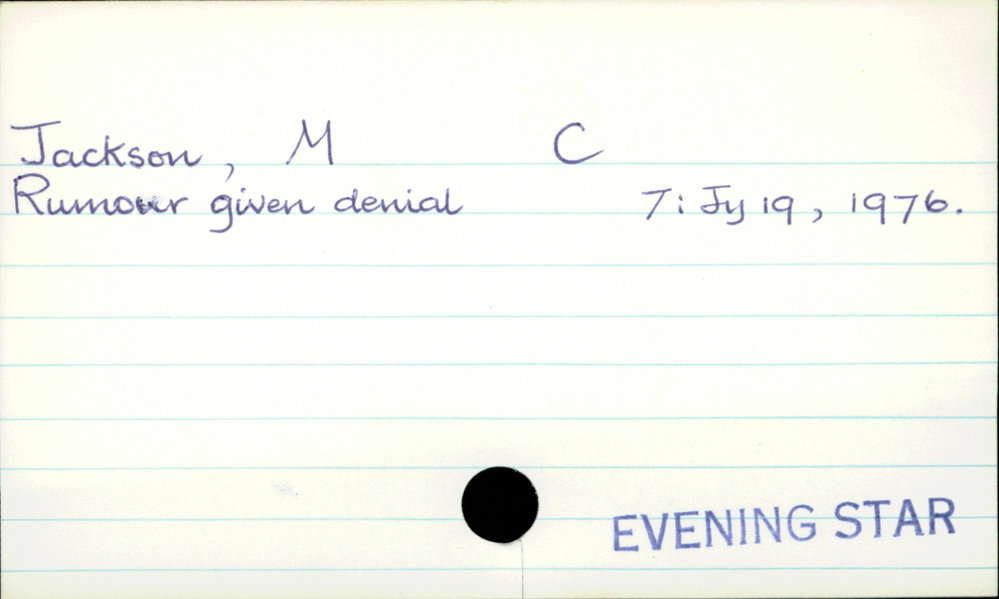 Jackson, M C
Rumour given denial 7: Jy 19, 1976.
EVENING STAR